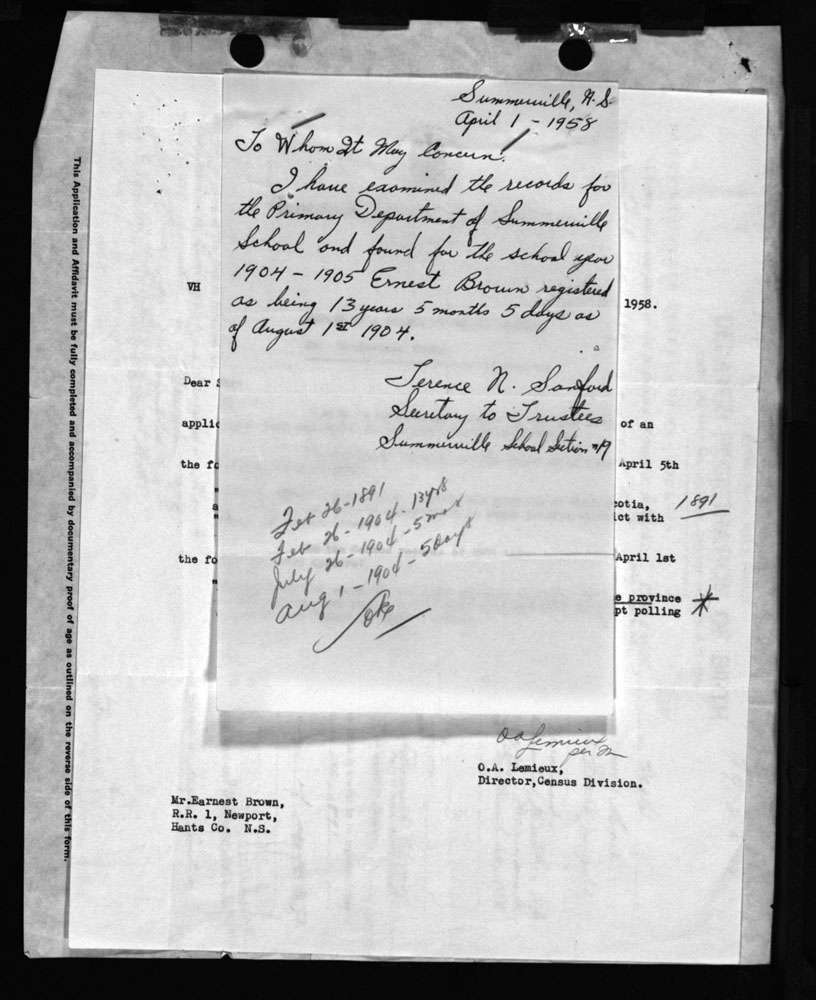 Summerville, N.S.
April 1 - 1958
To Whom It May Concern:
I have examined the records for
the Primary Department of Summerville
School and found for the school year
1904 - 1905 Ernest Brown registered
as being 13 years 5 months 5 days as
of August 1st 1904.
Terence N. Sanford
Secretary to Trustees
Summerville School Section #19
Feb 26 - 1891
Feb 26 - 1904 - 13 yrs
July 26 - 1904 - 5 mos
Aug 1 - 1904 - 5 days
oke
VH
1958.
Dear
applic
of an
the fo
April 5th
cotia,
1891
ict with
the fo
April 1st
e province
pt polling
O.A. Lemieux
per
O.A. Lemieux,
Director,Census Division.
Mr.Earnest Brown,
R.R. 1, Newport,
Hants Co. N.S.
This Application and Affidavit must be fully completed and accompanied by documentary proof of age as outlined on the reverse side of this form.